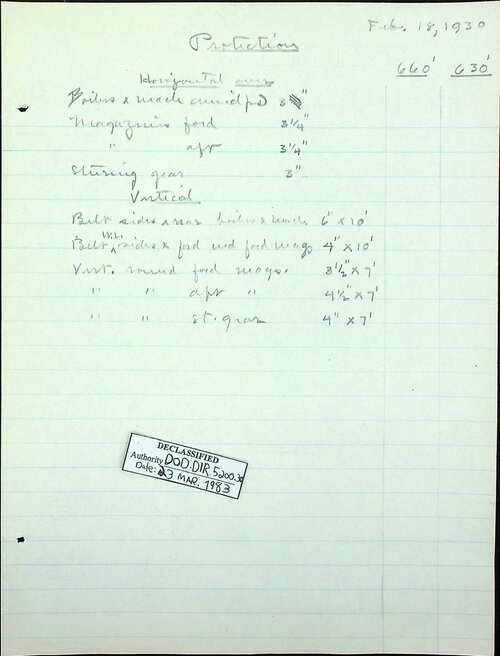 Feb. 18, 1930
Protection
660' 630'
Horizontal over
Boilers & mach. amidps 3"
Magazines ford 3 1/4"
" aft 3 1/4"
Steering gear 3"
Vertical
Belt sides & rear boilers & mach. 6" x 10'
Belt W.L. sides & ford end ford mags 4" x 10'
Vert. round ford mags. 3 1/2" x 7'
" " aft " 4 1/2" x 7'
" " st. gear 4" x 7'
DECLASSIFIED
Authority DOD.DIR.5200.30
Date: 23 MAR. 1983